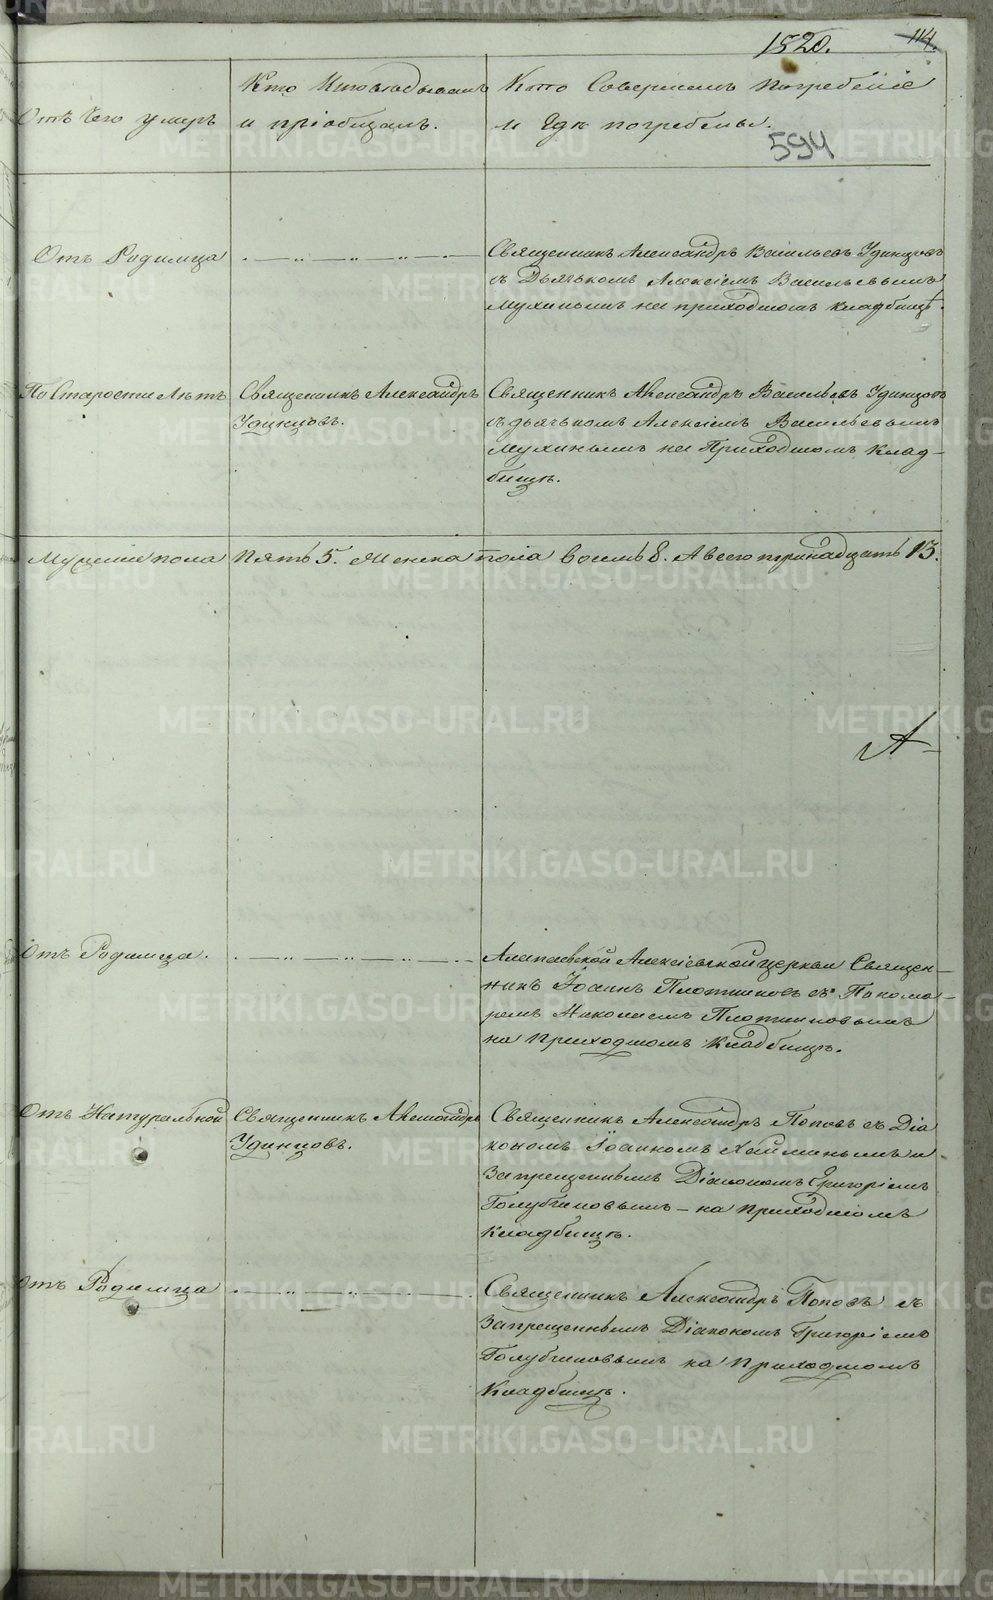 1820. 114.
Отъ чего умеръ
Кто исповѣдывалъ
и пріобщалъ.
Кто Совершалъ Погребеніе
и гдѣ погребены.
594
Отъ Родимца
Священникъ Александръ Васильевъ Удинцовъ
съ Дьячькомъ Алексіемъ Васильевымъ
Мухинымъ на приходскомъ кладбищѣ.
По Старости лѣтъ
Священникъ Александръ
Удинцовъ.
Священникъ Александръ Васильевъ Удинцовъ
съ дьячькомъ Алексіемъ Васильевымъ
Мухинымъ на Приходскомъ Клад-
бищѣ.
Мужеска пола Пять 5. Женска пола восемь 8. А всего тринадцать 13.
А
Отъ Родимца.
Алапаевской Алексіевской церкви Священ-
никъ Іоаннъ Плотниковъ съ Понома-
ремъ Николаемъ Плотниковымъ
на приходскомъ Кладбищѣ.
Отъ Натуральной
Священникъ Александръ
Удинцовъ.
Священникъ Александръ Поповъ съ Діа
кономъ Іоанномъ Хайминымъ и
Запрещеннымъ Діакономъ Григоріемъ
Голубчиковымъ – на приходскомъ
Кладбищѣ.
Отъ Родимца
Священникъ Александръ Поповъ съ
Запрещеннымъ Діакономъ Григоріемъ
Голубчиковымъ на Приходскомъ
Кладбищѣ.
METRIKI.GASO-URAL.RU